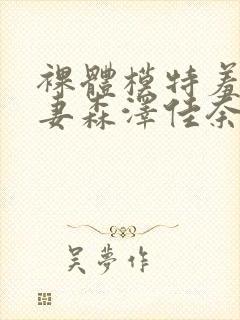 裸體模特羞
妻森澤佳奈
吴夢作